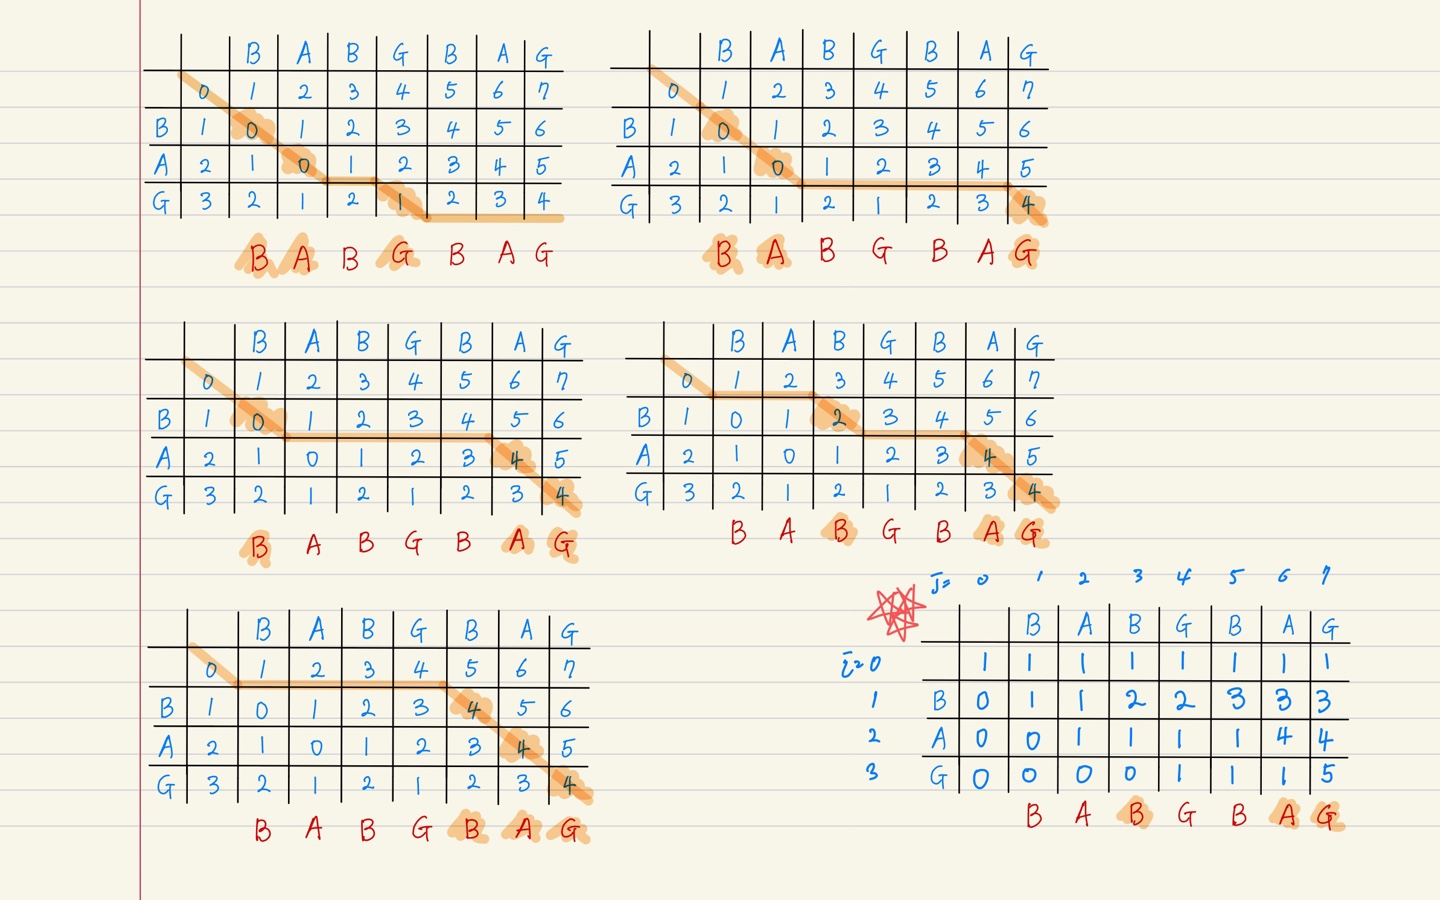 B A B G B A G
0 1 2 3 4 5 6 7
B 1 0 1 2 3 4 5 6
A 2 1 0 1 2 3 4 5
G 3 2 1 2 1 2 3 4
B A B G B A G
B A B G B A G
0 1 2 3 4 5 6 7
B 1 0 1 2 3 4 5 6
A 2 1 0 1 2 3 4 5
G 3 2 1 2 1 2 3 4
B A B G B A G
B A B G B A G
0 1 2 3 4 5 6 7
B 1 0 1 2 3 4 5 6
A 2 1 0 1 2 3 4 5
G 3 2 1 2 1 2 3 4
B A B G B A G
B A B G B A G
0 1 2 3 4 5 6 7
B 1 0 1 2 3 4 5 6
A 2 1 0 1 2 3 4 5
G 3 2 1 2 1 2 3 4
B A B G B A G
B A B G B A G
0 1 2 3 4 5 6 7
B 1 0 1 2 3 4 5 6
A 2 1 0 1 2 3 4 5
G 3 2 1 2 1 2 3 4
B A B G B A G
j= 0 1 2 3 4 5 6 7
B A B G B A G
i=0 1 1 1 1 1 1 1 1
1 B 0 1 1 2 2 3 3 3
2 A 0 0 1 1 1 1 4 4
3 G 0 0 0 0 1 1 1 5
B A B G B A G